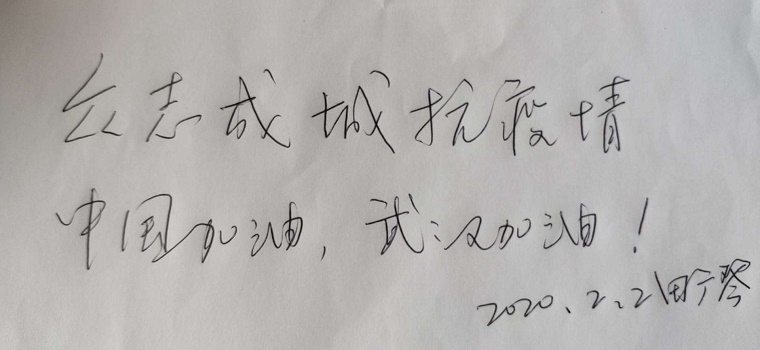 众志成城抗疫情
中国加油，武汉加油！
2020.2.21